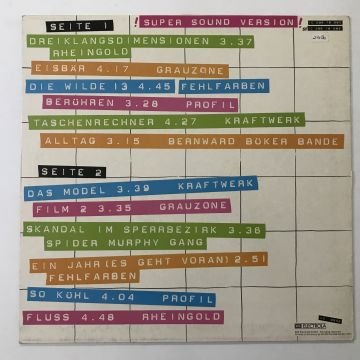 SEITE 1
! SUPER SOUND VERSION !
DREIKLANGSDIMENSIONEN 3.37
RHEINGOLD
EISBÄR 4.17 GRAUZONE
DIE WILDE 13 4.45 FEHLFARBEN
BERÜHREN 3.28 PROFIL
TASCHENRECHNER 4.27 KRAFTWERK
ALLTAG 3.15 BERNWARD BÜKER BANDE
SEITE 2
DAS MODEL 3.39 KRAFTWERK
FILM 2 3.35 GRAUZONE
SKANDAL IM SPERRBEZIRK 3.36
SPIDER MURPHY GANG
EIN JAHR (ES GEHT VORAN) 2.51
FEHLFARBEN
SO KÜHL 4.04 PROFIL
FLUSS 4.48 RHEINGOLD
ELECTROLA